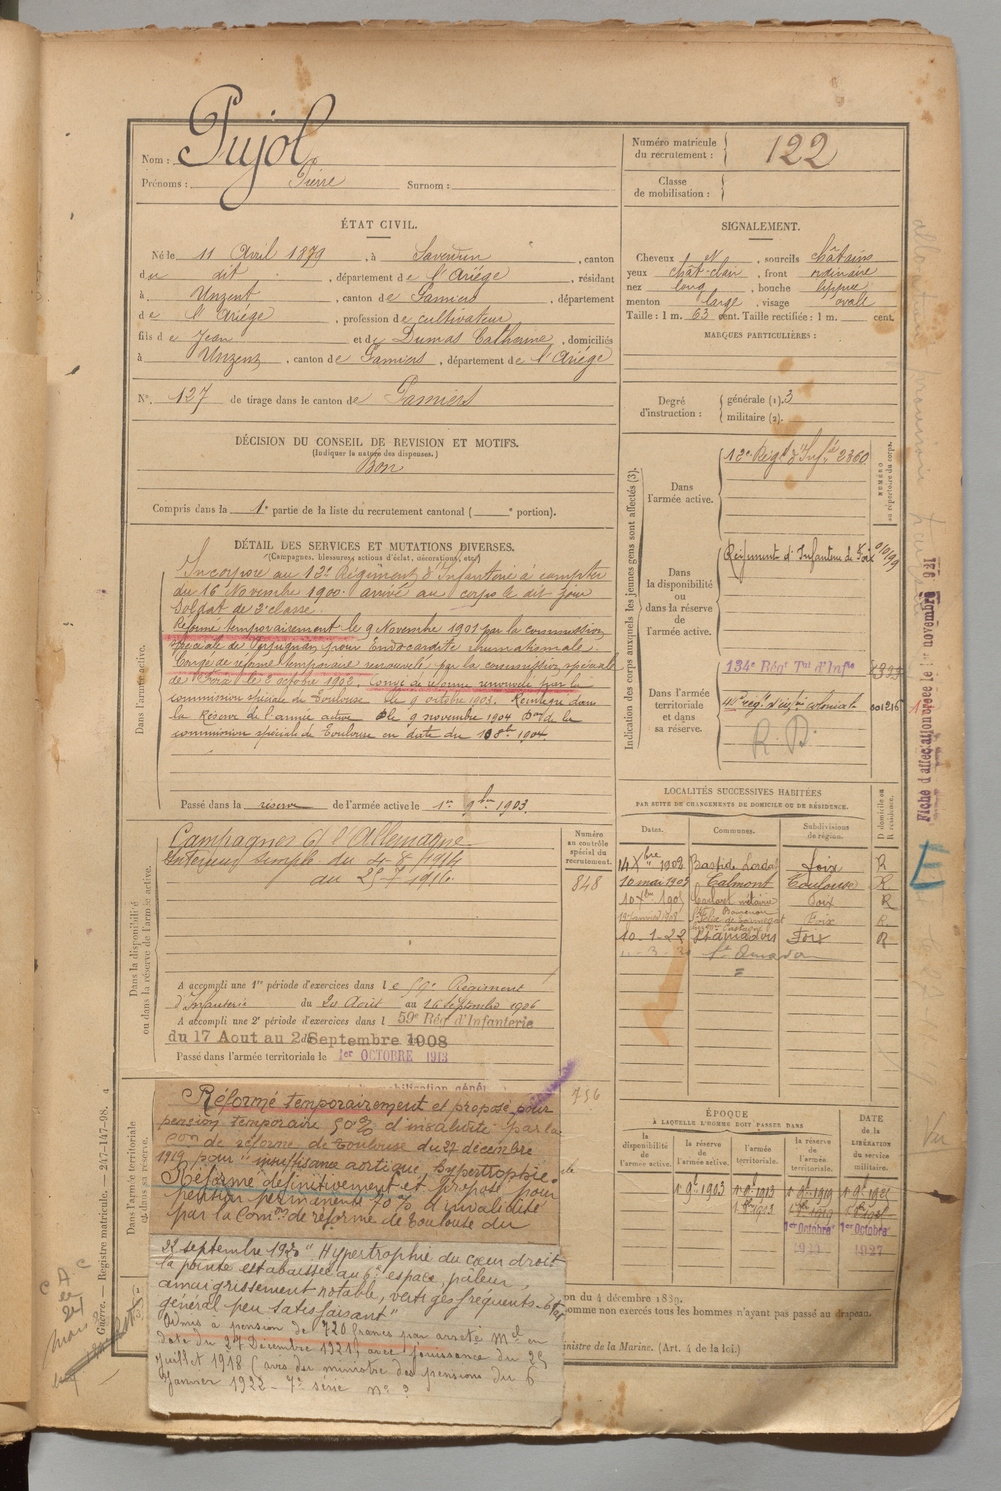 Nom : Pujol
Prénoms : Pierre Surnom :
Numéro matricule du recrutement : 122
Classe de mobilisation :
ÉTAT CIVIL.
Né le 11 Avril 1879, à Saverdun, canton
du dit, département de l'Ariège, résidant
à Unzent, canton de Pamiers, département
de l'Ariège, profession de cultivateur
fils de Jean et de Dumas Catherine, domiciliés
à Unzent, canton de Pamiers, département de l'Ariège
N°. 127 de tirage dans le canton de Pamiers
SIGNALEMENT.
Cheveux et, sourcils châtains
yeux chât. clair, front ordinaire
nez long, bouche lippue
menton large, visage ovale
Taille : 1 m. 63 cent. Taille rectifiée : 1 m. cent.
MARQUES PARTICULIÈRES :
Degré d'instruction : générale (1). 3
militaire (2).
DÉCISION DU CONSEIL DE REVISION ET MOTIFS.
(Indiquer la nature des dispenses.)
Bon
Compris dans la 1e partie de la liste du recrutement cantonal ( e portion).
DÉTAIL DES SERVICES ET MUTATIONS DIVERSES.
(Campagnes, blessures, actions d'éclat, décorations, etc.)
Dans l'armée active.
Incorporé au 12e Régiment d'Infanterie à compter
du 16 Novembre 1900. arrivé au corps le dit jour
Soldat de 2e classe.
Réformé temporairement le 9 Novembre 1901 par la commission
spéciale de Perpignan pour Endocardite rhumatismale.
Congé de réforme temporaire renouvelé par la commission spéciale
de Foix le 2 octobre 1902. Congé de réforme renouvelé par la
commission spéciale de Toulouse le 9 octobre 1903. Réintégré dans
la Réserve de l'armée active le 9 novembre 1904 de la
commission spéciale de Toulouse en date du 8bre 1904
Passé dans la réserve de l'armée active le 1er 9bre 1903.
Indication des corps auxquels les jeunes gens sont affectés (3).
NUMÉRO au répertoire du corps.
Dans l'armée active.
12e Régt d'Infie 2360
Dans la disponibilité ou dans la réserve de l'armée active.
Régiment d'Infanterie de Foix
Dans l'armée territoriale et dans sa réserve.
134e Régt Tal d'Infie
rég. d'infie coloniale 001215
R. D.
Fiche d'affectation
LOCALITÉS SUCCESSIVES HABITÉES
PAR SUITE DE CHANGEMENTS DE DOMICILE OU DE RÉSIDENCE.
Dates. Communes. Subdivisions de région. D domicile ou R résidence.
14 Xbre 1902 Bastide Lordat Foix R
10 mai 1903 Calmont Toulouse R
10 Xbre 1905 Foix R
19 janvier 1908 Foix R
10-1-22 St Amadou Foix R
St Amadou
Dans la disponibilité ou dans la réserve de l'armée active.
Numéro au contrôle spécial du recrutement.
848
Campagnes Ct l'Allemagne
Intérieur simple du 4-8-1914
au 25-7-1916.
A accompli une 1re période d'exercices dans le 59e Régiment
d'Infanterie du 20 Août au 16 Septembre 1906
A accompli une 2e période d'exercices dans l 59e Régt d'Infanterie
du 17 Aout au 2 Septembre 1908
Passé dans l'armée territoriale le 1er OCTOBRE 1913
756
Dans l'armée territoriale et dans sa réserve.
Réformé temporairement et proposé pour
pension temporaire 50% d'invalidité par la
con de réforme de Toulouse du 27 décembre
1919 pour "insuffisance aortique, hypertrophie."
Réformé définitivement et proposé pour
pension permanente 70% d'invalidité
par la Comon de réforme de Toulouse du
22 septembre 1920 "Hypertrophie du cœur droit
la pointe est abaissée au 6e espace, pâleur,
amaigrissement notable, vertiges fréquents - Etat
général peu satisfaisant"
Admis à pension de 720 francs par arrêté Mel en
date du 27 Décembre 1921, avec jouissance du 25
Juillet 1918 (avis du ministre des pensions du 6
Janvier 1922 - 7e série No ?
ÉPOQUE
À LAQUELLE L'HOMME DOIT PASSER DANS
la disponibilité de l'armée active. la réserve de l'armée active. l'armée territoriale. la réserve de l'armée territoriale. DATE de la LIBÉRATION du service militaire.
1er 9bre 1903 1er 9bre 1913 1er 9bre 1919
1er Octobre 1er Octobre
1927
on du 4 décembre 1889.
omme non exercés tous les hommes n'ayant pas passé au drapeau.
inistre de la Marine. (Art. 4 de la loi.)
Guerre. — Registre matricule. — 247-147-98.
E